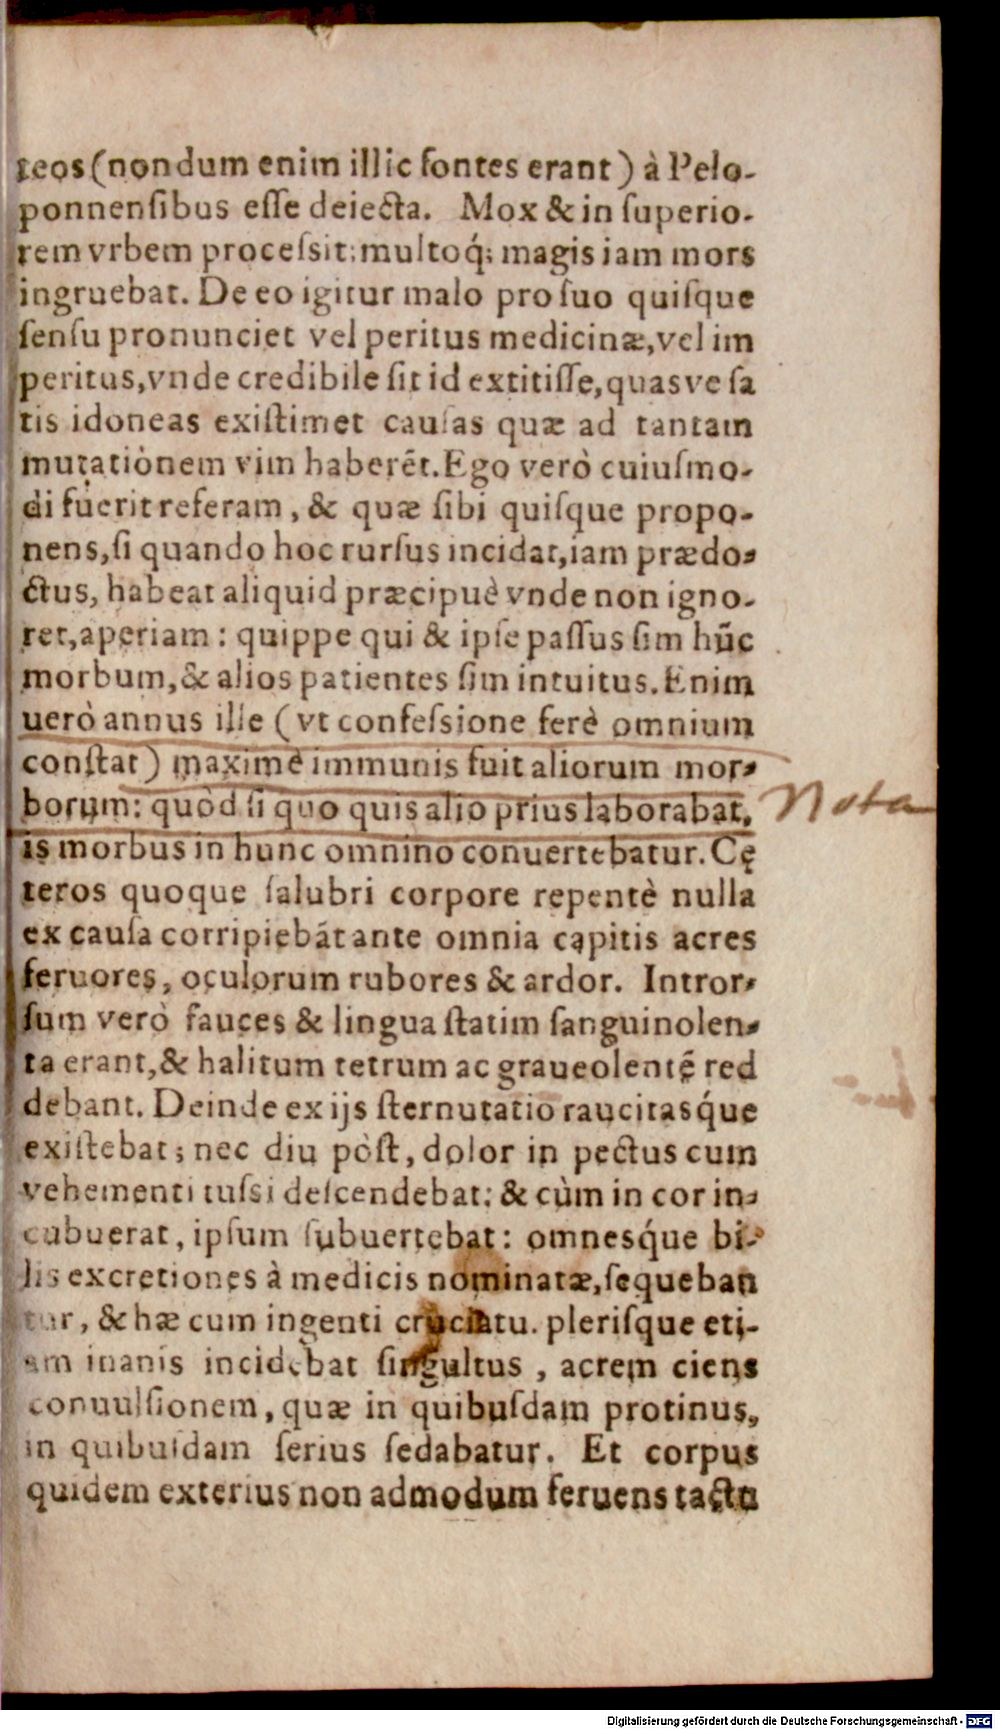 teos (nondum enim illic fontes erant) à Pelo-
ponnenſibus eſſe deiecta. Mox & in ſuperio-
rem vrbem proceſsit: multoq́; magis iam mors
ingruebat. De eo igitur malo pro ſuo quiſque
ſenſu pronunciet vel peritus medicinæ, vel im
peritus, vnde credibile ſit id extitiſſe, quasve ſa
tis idoneas exiſtimet cauſas quæ ad tantam
mutatiònem vim haberẽt. Ego verò cuiuſmo-
di fuerit referam, & quæ ſibi quiſque propo-
nens, ſi quando hoc rurſus incidat, iam prædo-
ctus, habeat aliquid præcipuè vnde non igno-
ret, aperiam: quippe qui & ipſe paſſus ſim hũc
morbum, & alios patientes ſim intuitus. Enim
uerò annus ille (vt confeſsione ferè omnium
conſtat) maximè immunis fuit aliorum mor-
borum: quòd ſi quo quis alio prius laborabat,
Nota
is morbus in hunc omnino conuertebatur. Cę
teros quoque ſalubri corpore repentè nulla
ex cauſa corripiebãt ante omnia capitis acres
feruores, oculorum rubores & ardor. Intror-
ſum verò fauces & lingua ſtatim ſanguinolen-
ta erant, & halitum tetrum ac graueolentẽ red
debant. Deinde ex ijs ſternutatio raucitasq́ue
exiſtebat; nec diu pòſt, dolor in pectus cum
vehementi tuſsi deſcendebat: & cùm in cor in-
cubuerat, ipſum ſubuertebat: omnesq́ue bi-
lis excretiones à medicis nominatæ, ſequeban
tur, & hæ cum ingenti cruciatu. pleriſque eti-
am inanis incidebat ſingultus, acrem ciens
conuulſionem, quæ in quibuſdam protinus,
in quibuſdam ſerius ſedabatur. Et corpus
quidem exterius non admodum feruens tactu
Digitalisierung gefördert durch die Deutsche Forschungsgemeinschaft - DFG